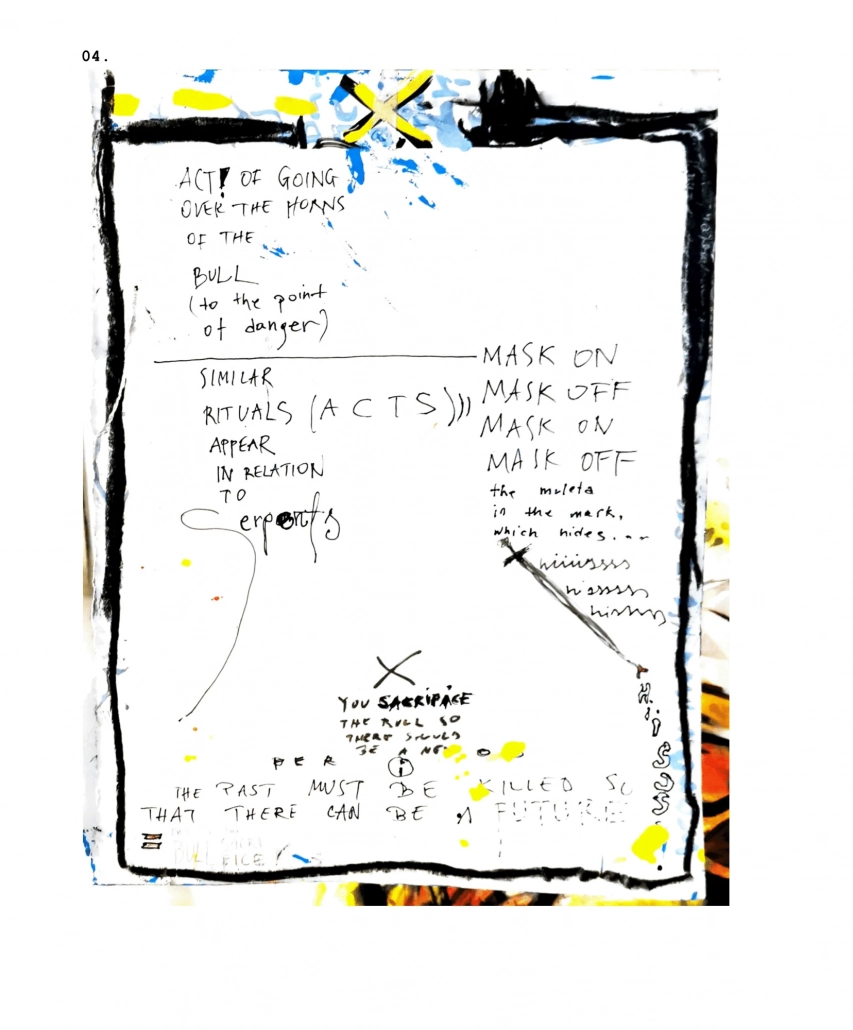 04.
ACT! OF GOING
OVER THE HORNS
OF THE
BULL
(to the point
of danger)
SIMILAR
RITUALS (ACTS)))
APPEAR
IN RELATION
TO
Serpents
MASK ON
MASK OFF
MASK ON
MASK OFF
the muleta
in the mask,
which hides...
hiiiissss
hissssss
hissss
Hisss.
X
YOU SACRIFICE
THE BULL SO
THERE SHOULD
BE A NEW
PER i O
THE PAST MUST BE KILLED SO
THAT THERE CAN BE A FUTURE
BULL